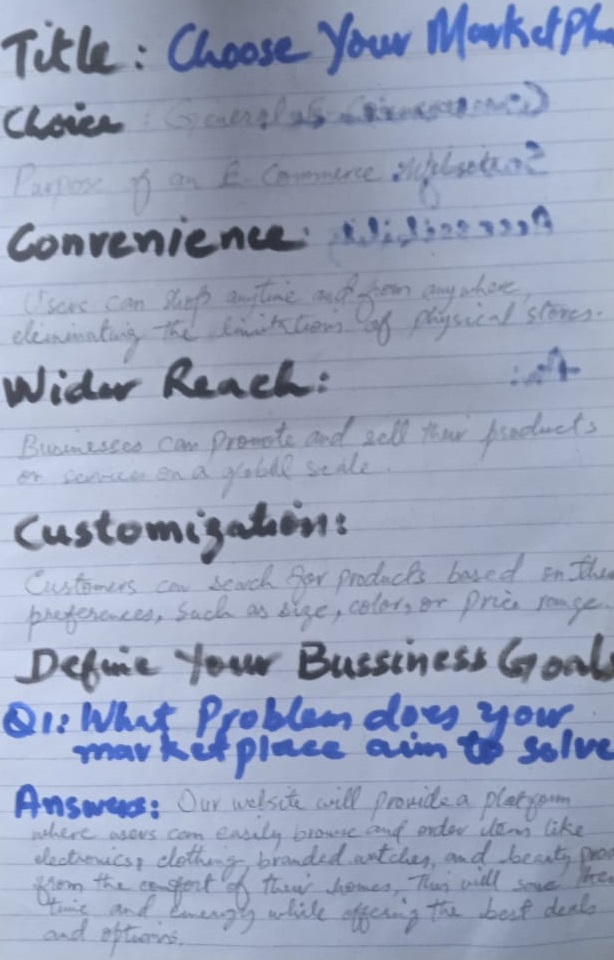 Title: Choose Your Marketpla
Choice: General E-Commerce
Purpose of an E-Commerce Website?
Convenience:
Users can shop anytime and from anywhere,
eleminating the limitations of physical stores.
Wider Reach:
Businesses can promote and sell their products
or services on a global scale.
Customization:
Customers can search for products based on their
preferences, such as size, color, or price range
Define Your Bussiness Goals
Q1: What Problem does your
marketplace aim to solve
Answers: Our website will provide a platform
where users can easily browse and order item like
electronics, clothing branded watches, and beauty prod
from the comfort of their homes, This will save their
time and energy while offering the best deals
and options.